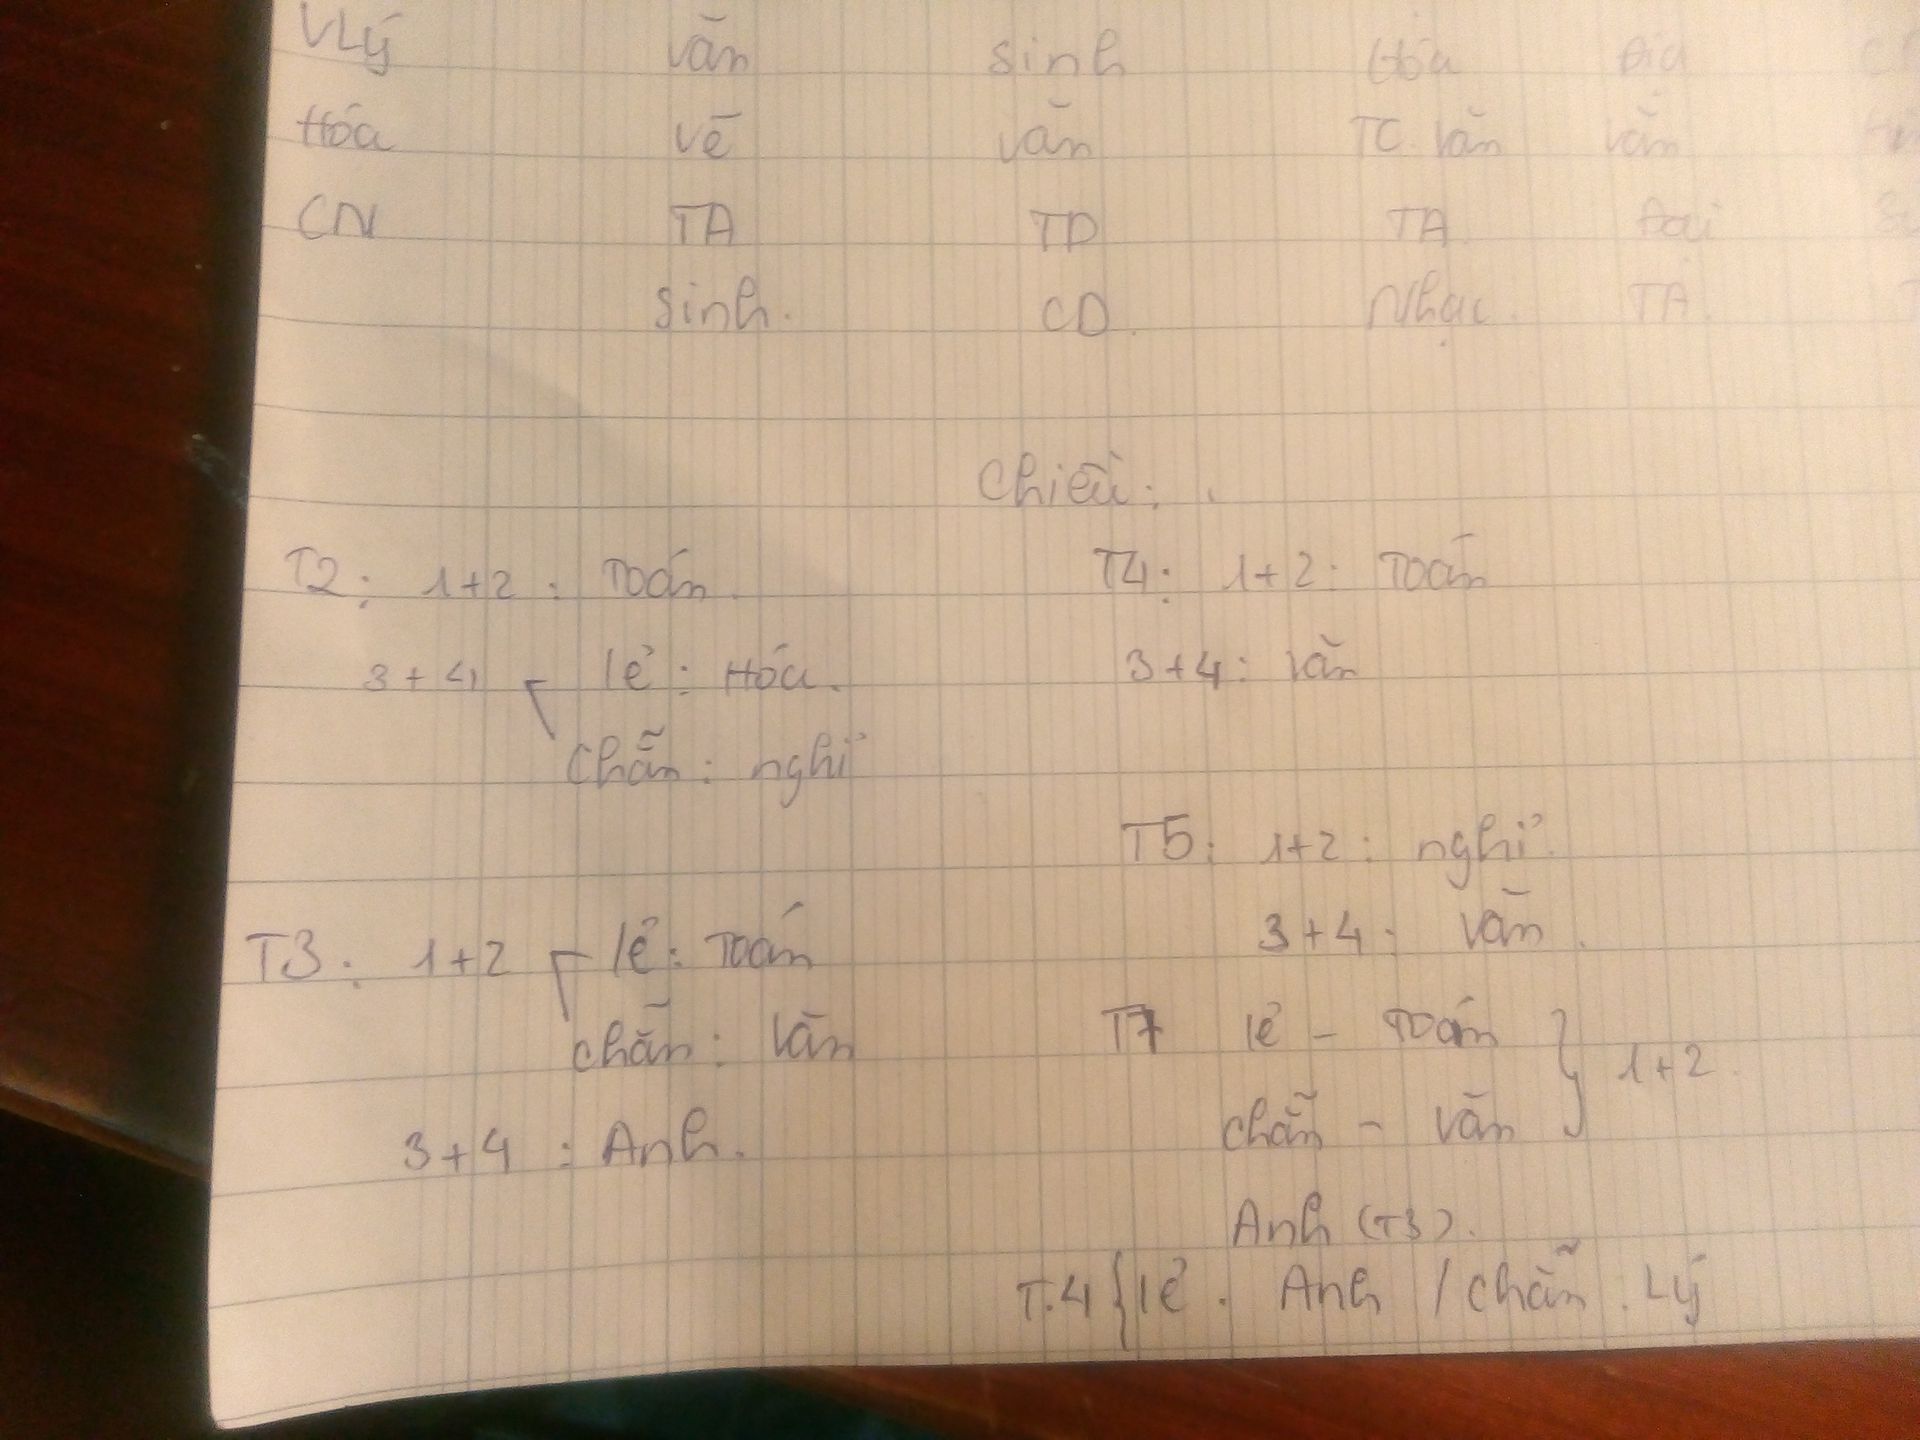 VLý Văn Sinh Hóa Địa
Hóa Vẽ Văn TC Văn Văn
CN TA TD TA Đại
Sinh. CD. Nhạc. TA.
Chiều:
T2: 1+2: Toán.
3+4 lẻ: Hóa.
chẵn: nghỉ
T3: 1+2 lẻ: Toán
chẵn: Văn
3+4: Anh.
T4: 1+2: Toán
3+4: Văn
T5: 1+2: nghỉ.
3+4: Văn.
T7 lẻ - Toán } 1+2.
chẵn - Văn
Anh (T3).
T.4 { lẻ. Anh / chẵn. Lý